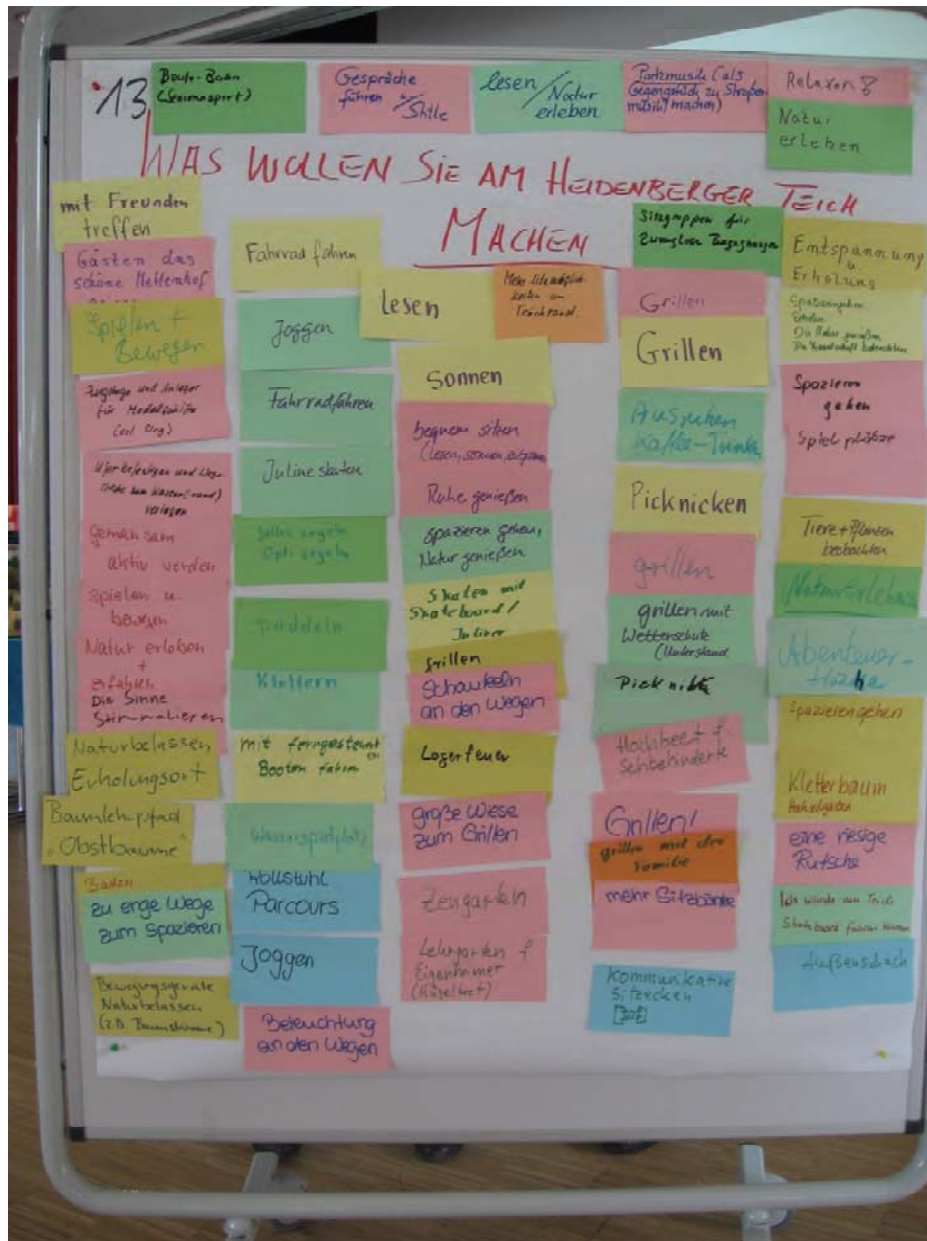 13
Boule-Bahn
(Seniorensport)
Gespräche
führen
Stille
lesen/Natur
erleben
Parkmusik (als
Gegenstück zu Straßen
musik) machen)
Relaxen
Natur
erleben
WAS WOLLEN SIE AM HEIDENBERGER TEICH
MACHEN
mit Freunden
treffen
Gästen das
schöne Mettenhof
Spielen +
Bewegen
Zugänge und Anleger
für Modellschiffe
Uferbefestigen und Wege
verlegen
gemeinsam
aktiv werden
spielen u.
bewegen
Natur erleben
+
erfahren
Die Sinne
Stimmulieren
Naturbelassen
Erholungsort
Baumlehrpfad
"Obstbäume"
Baden
zu enge Wege
zum Spazieren
Bewegungsgeräte
Naturbelassen
(z.B. Baumstämme)
Fahrrad fahren
Joggen
Fahrradfahren
Inlineskaten
selber segeln
Opti segeln
paddeln
Klettern
mit ferngesteuert
Booten fahren
Wasserspielplatz
Rollstuhl
Parcours
Joggen
Beleuchtung
an den Wegen
lesen
Mehr Sitzmöglich
keiten am
Teichrand
Sonnen
bequem sitzen
(lesen, sonnen,
Ruhe genießen
spazieren gehen,
Natur genießen
Skaten mit
Skateboard/
Inliner
grillen
Schaukeln
an den Wegen
Lagerfeuer
große Wiese
zum Grillen
Zengarten
Lehrgarten f
Eigenheimer
(Hügelbeet)
Sitzgruppen für
zwanglose Begegnungen
Grillen
Grillen
Ausruhen
Kaffee-Trinken
Picknicken
grillen
grillen mit
Wetterschutz
(Unterstand
Picknick
Hochbeet f
Sehbehinderte
Grillen!
grillen mit der
Familie
mehr Sitzbänke
Kommunikative
Sitzecken
Entspannung
u.
Erholung
Spazierengehen
Erholen
Die Natur genießen
Die Landschaft betrachten
Spazieren
gehen
Spielplätze
Tiere + Pflanzen
beobachten
Naturerlebnis
Abenteuer-
Spazierengehen
Kletterbaum
eine riesige
Rutsche
Ich würde am Teich
Skateboard fahren können
Außenschach